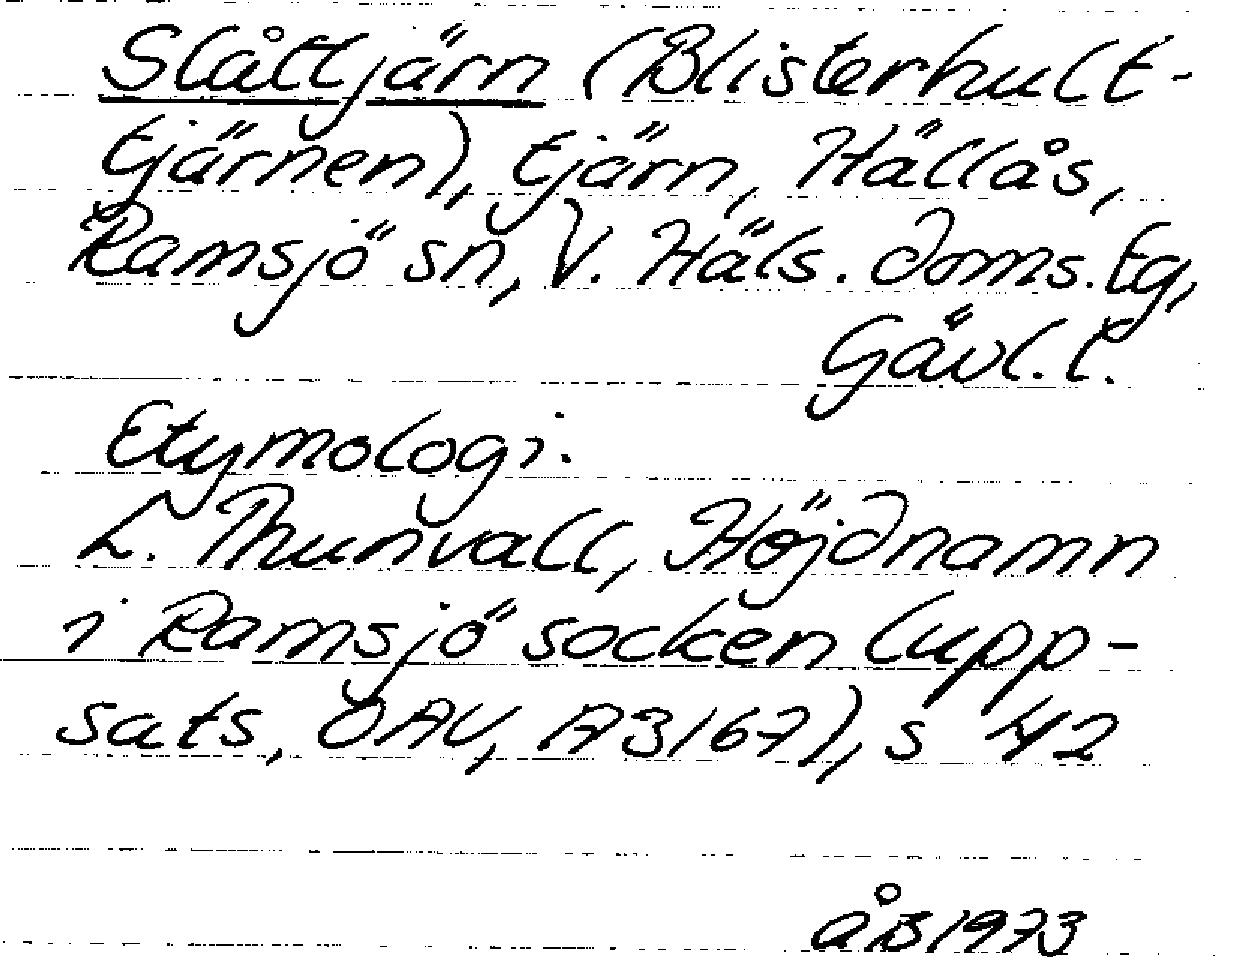 Slåttjärn (Blisterhult-
tjärnen), tjärn, Hällås,
Ramsjö sn, V. Häls. doms. tg,
Gävl. l.
Etymologi.
L. Thunvall, Höjdnamn
i Ramsjö socken (upp-
sats, OAU, A3167), s 42
åB 1973